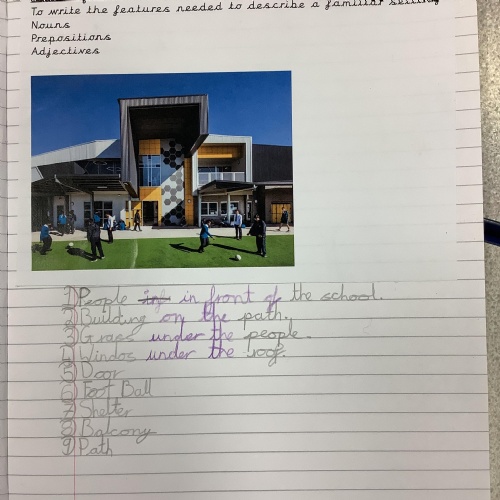 To write the features needed to describe a familiar setting
Nouns
Prepositions
Adjectives
1) People inf in front of the school.
2) Building on the path.
3) Grass under the people.
4) Windos under the roof.
5) Door
6) Foot Ball
7) Shelter
8) Balcony
9) Path